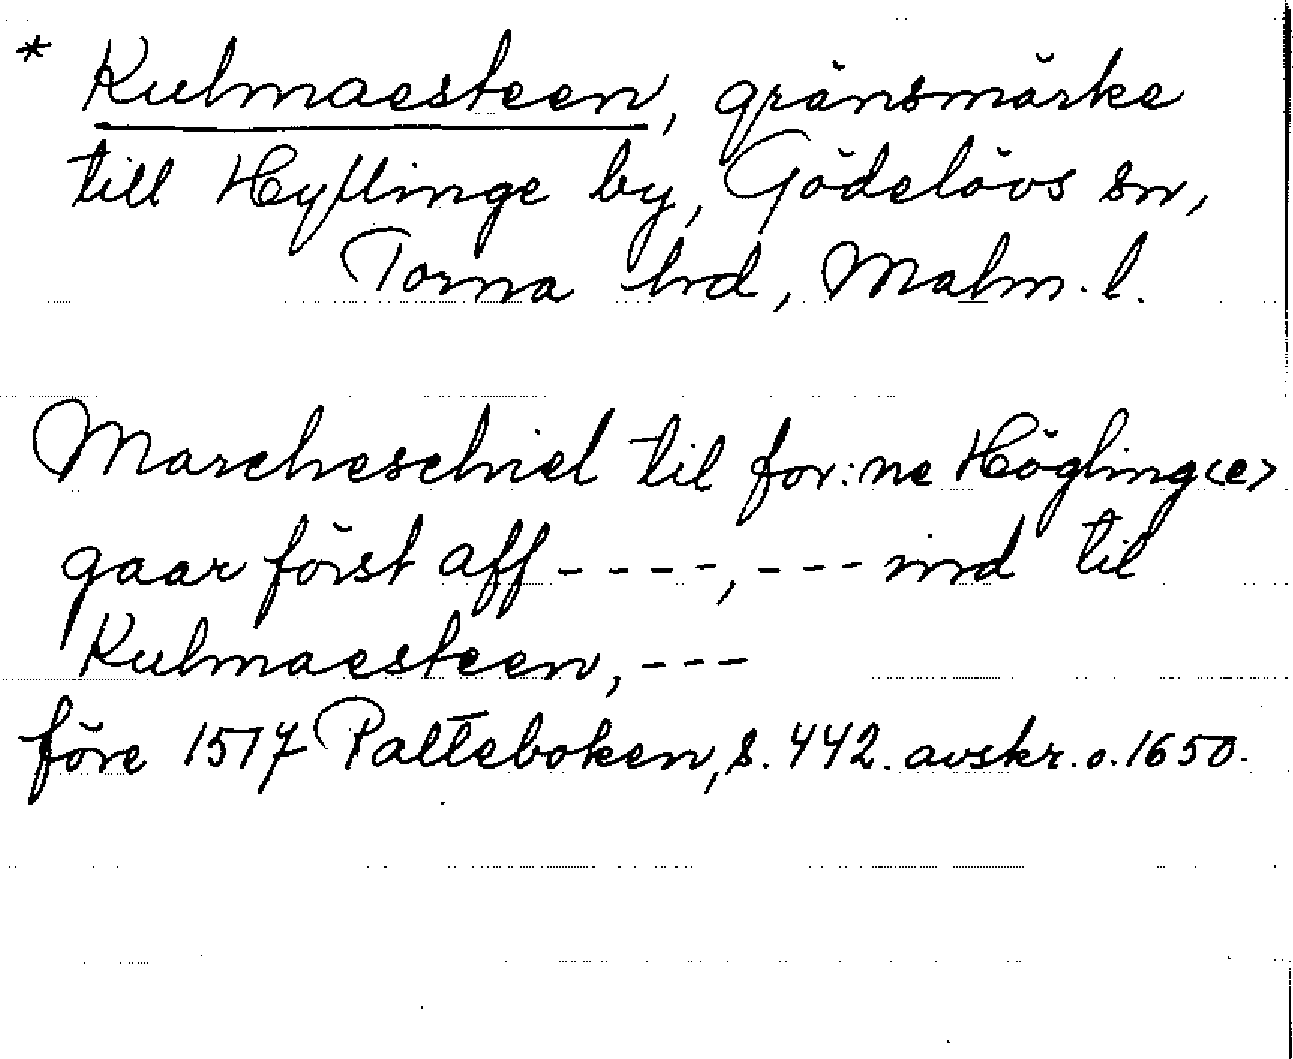 * Kulmaesteen, gränsmärke
till Hyllinge by, Gödelövs sn,
Torna hrd, Malm. l.
Marcheschiel til for:ne Högling<e>
gaar först aff ----, --- ind til
Kulmaesteen, ---
före 1517 Palteboken, s. 442. avskr. o. 1650.